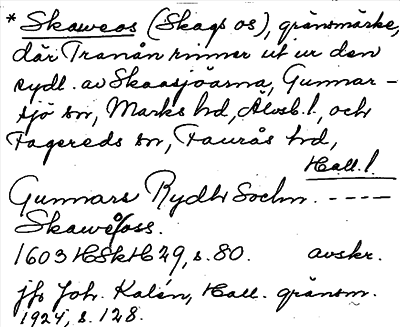 * Skaweos (Skags os), gränsmärke,
där Tranån rinner ut ur den
sydl. av Skaasjöarna, Gunnar-
sjö sn, Marks hd, Älvsb. l., och
Fagereds sn, Faurås hd,
Hall. l.
Gunnars Rydh Sochn. ----
Skaweåoss.
1603 HSkH 29, s. 80. avskr.
jfr Joh. Kalén, Hall. gränsm.
1924, s. 128.